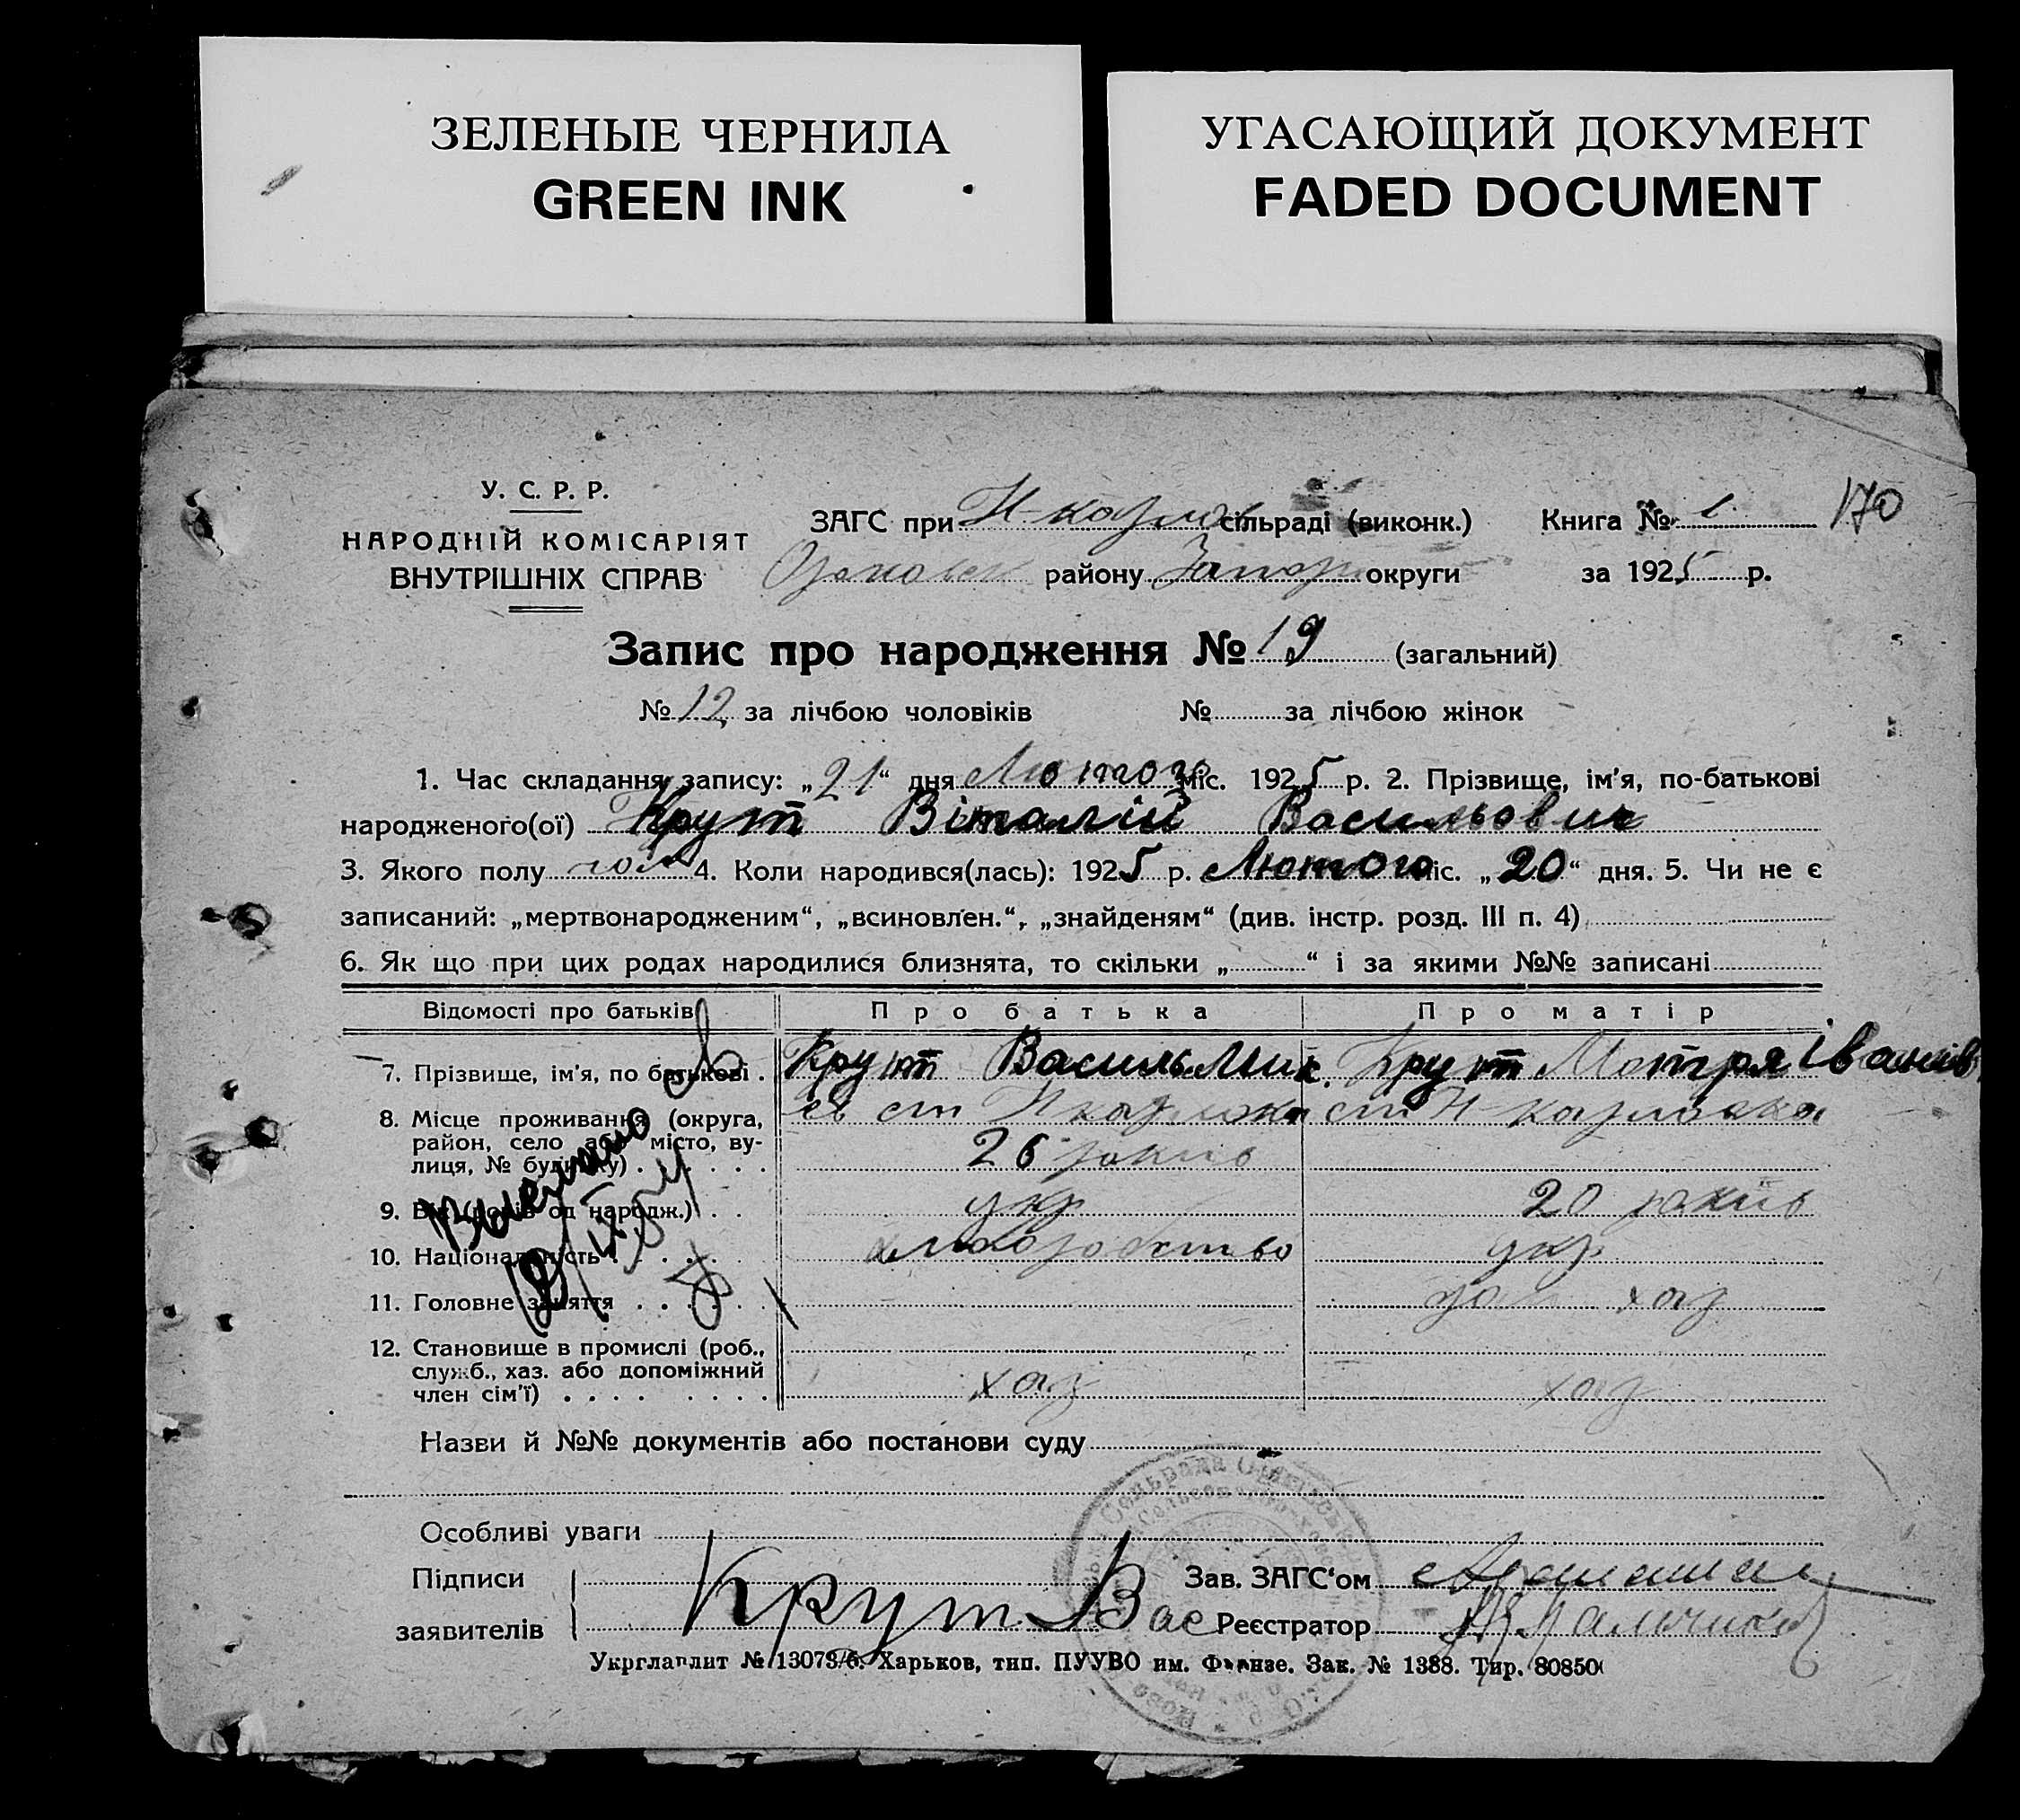 ЗЕЛЕНЫЕ ЧЕРНИЛА
GREEN INK
УГАСАЮЩИЙ ДОКУМЕНТ
FADED DOCUMENT
У. С. Р. Р.
НАРОДНІЙ КОМІСАРІЯТ
ВНУТРІШНІХ СПРАВ
ЗАГС при сільраді (виконк.) Книга № 1 170
району Запор округи за 1925 р.
Запис про народження № 19 (загальний)
№ 12 за лічбою чоловіків № за лічбою жінок
1. Час складання запису: „21“ дня Лютого міс. 1925 р. 2. Прізвище, ім'я, по-батькові
народженого(ої) Крут Віталій Васильович
3. Якого полу чол 4. Коли народився(лась): 1925 р. Лютого міс. „20“ дня. 5. Чи не є
записаний: „мертвонародженим“, „всиновлен.“, „знайденям“ (див. інстр. розд. III п. 4)
6. Як що при цих родах народилися близнята, то скільки „ “ і за якими №№ записані
Відомості про батьків Про батька Про матір
7. Прізвище, ім'я, по батькові . Крут Василь Мик. Крут Мотря Іванів
8. Місце проживання (округа,
район, село або місто, ву-
лиця, № будинку) . . . . . . 26 років
9. Вік (років од народж.) . . укр 20 років
10. Національність . . . . . хліборобство укр
11. Головне заняття . . . . . . хаз
12. Становище в промислі (роб.,
служб., хаз. або допоміжний
член сім'ї) . . . . . . . . . хаз хаз
Назви й №№ документів або постанови суду
Особливі уваги
Підписи
заявителів
Крут Вас
Зав. ЗАГС'ом
Реєстратор
Укрглавлит № 13073/б. Харьков, тип. ПУУВО им. Фрунзе. Зак. № 1388. Тир. 80850